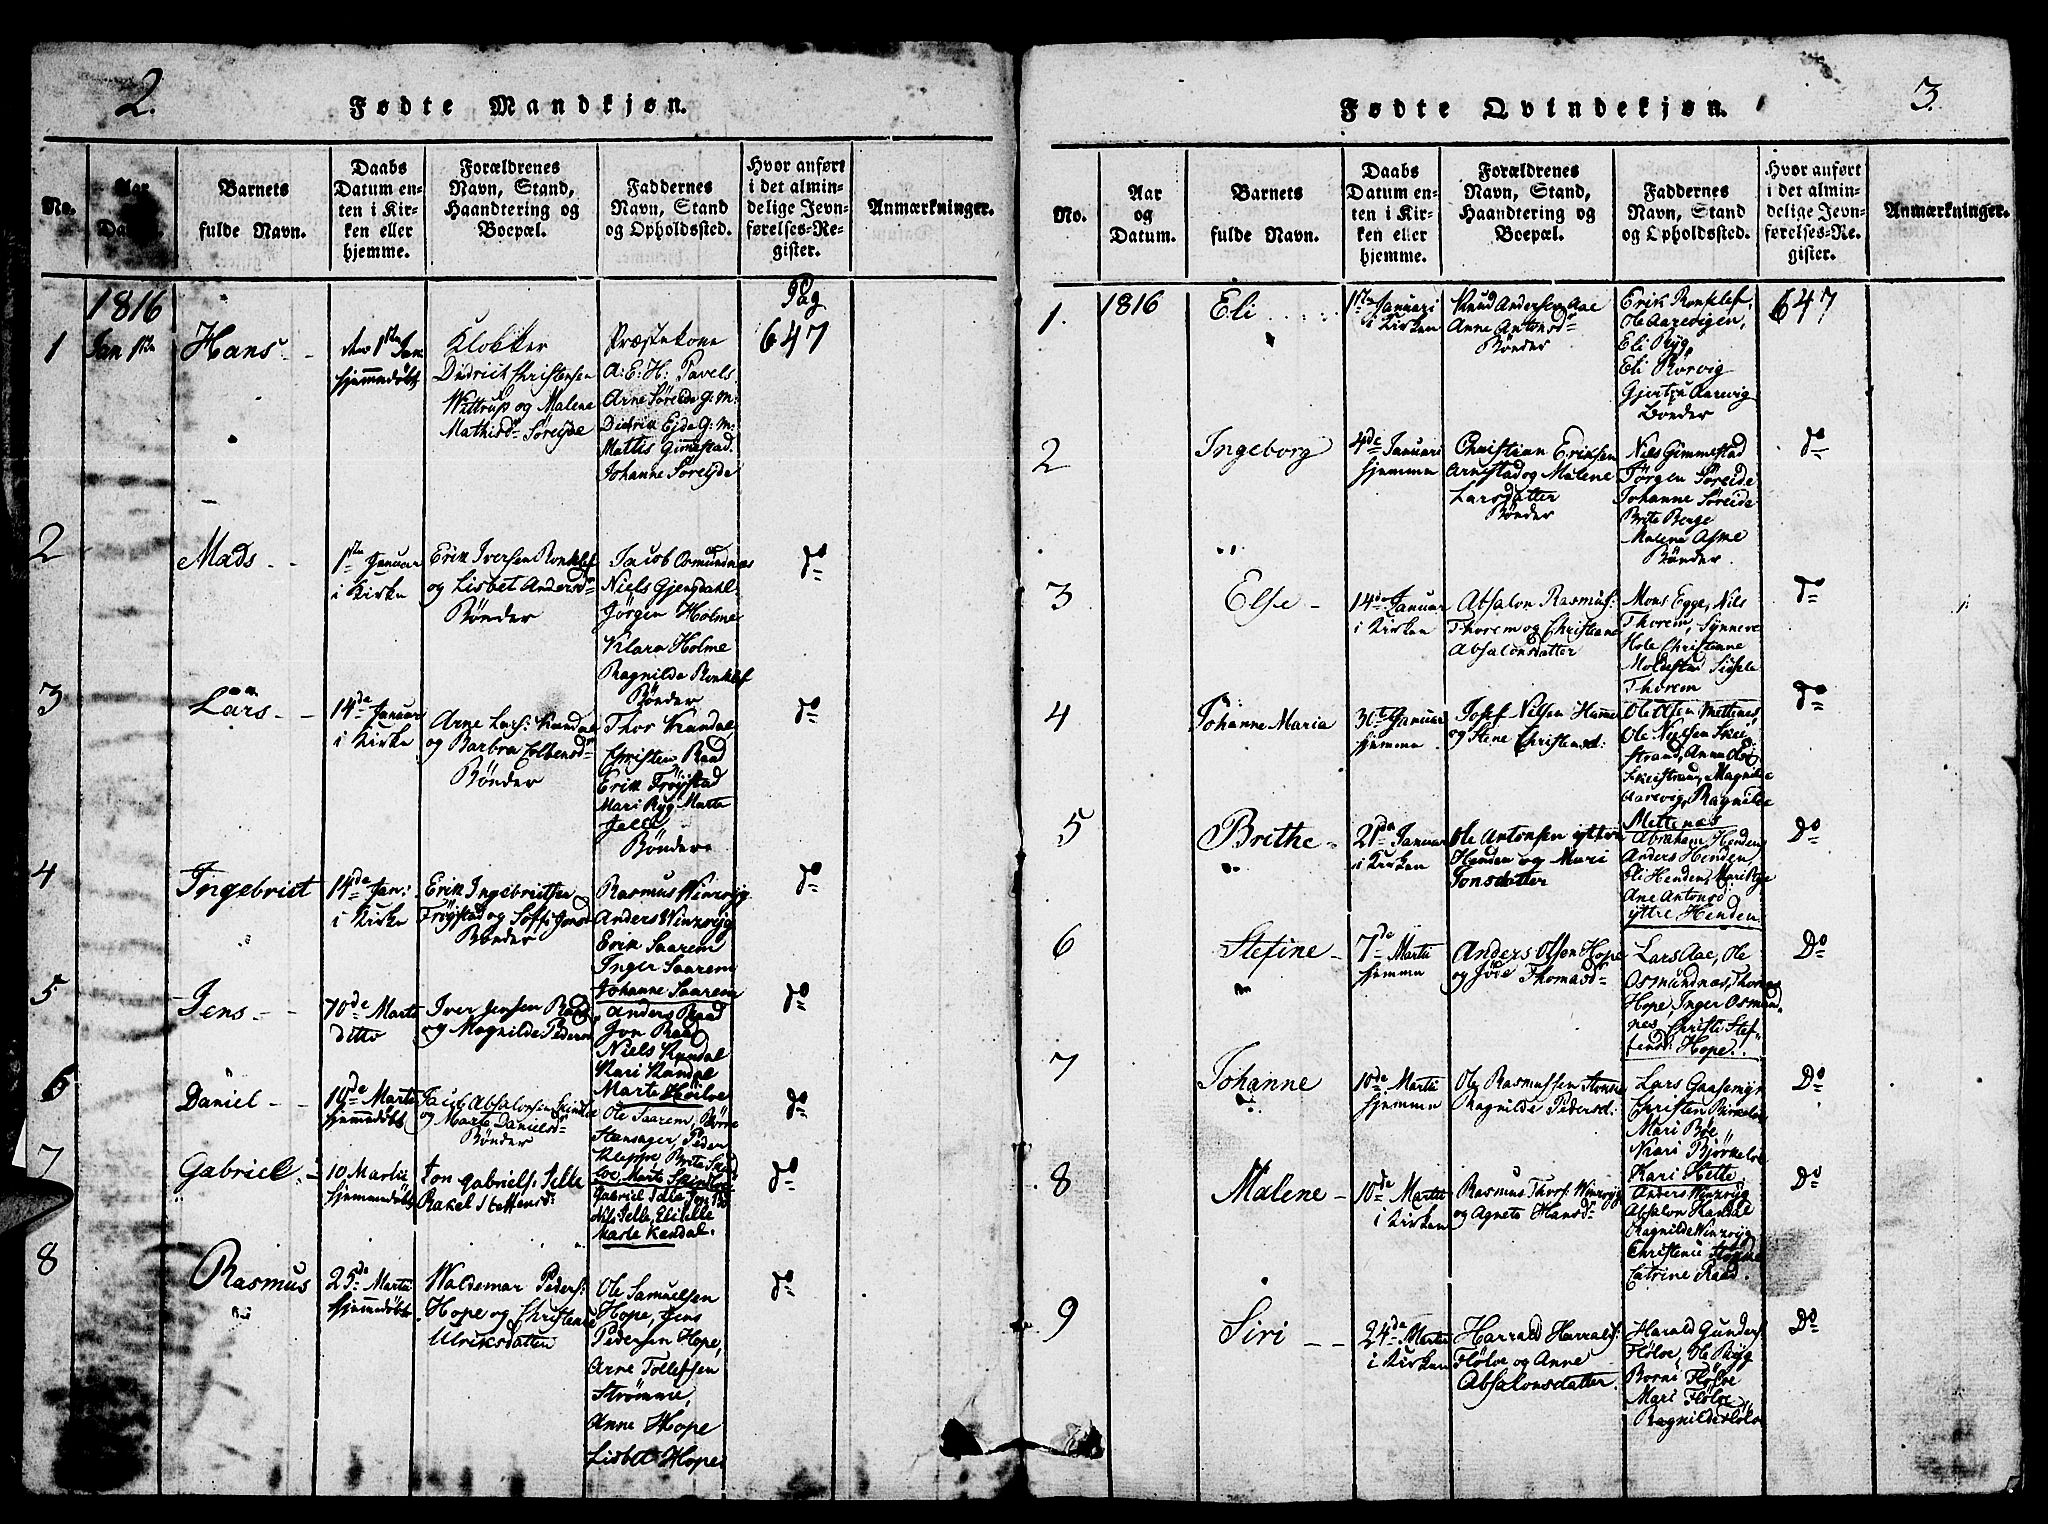 2.
Fødte Mandkjøn.
No.
Aar
Datum.
Barnets
fulde Navn.
Daabs
Datum en-
ten i Kir-
ken eller
hjemme.
Forældrenes
Navn, Stand,
Haandtering og
Boepæl.
Faddernes
Navn, Stand
og Opholdssted.
Hvor anført
i det almin-
delige Jevn-
førelses-Re-
gister.
Anmærkninger.
1816
1
Jan 1ste
Hans
den 1ste Jan:
hjemmedøbt
Klokker
Didrich Christensen
Wittrup og Malene
Mathisd: Søreide
Præstekone
A: E: H: Pavels.
Arne Søreide G: M:
Didrik Ejde G: M:
Mattis Gimestad.
Johanne Søreyde
Pag
647
2
Mads
1ste Januar
i Kirke
Erik Iversen Ronklef
og Lisbet Andersd:
Bönder
Jacob Osmundnæs
Niels Gjengdahl
Jörgen Holme
Klara Holme
Ragnilde Ronklef
Bönder
do
3
Lars
14de Januar
i Kirke
Arne Lars: Kandal
og Barbra
Bönder
Thor Kandal
Christen Raad
Erik Fröystad
Mari Ryg Marte
Jelle
Bönder
do
4
Ingebrict
14de Jan:
i Kirke
Erik Ingebrictsen
Fröystad og Soffi Jonsd
Bönder
Rasmus Winsryg
Anders Winsryg
Erik Saarem
Inger Saarem
Johanne Saarem
do
5
Jens
10de Marti
ditto
Iver Jensen Raad
og Magnilde Peders
Anders Raad
Jon Raad
Niels Kandal
Kari Kandal
Marte
do
6
Daniel
10de Marti
hjemmedöbt
Jacob Absalonsen
og Marte Danielsd
Bönder
Ole Saarem, Börre
Stensager, Peder
Kleppe, Brite
Marte
do
7
Gabriel
10 Martii
hjemmedöbt
Jon Gabriels: Jelle
Rakel Steffensd:
Gabriel Jelle Jon
Nils Jelle, Eli Jelle
Marte Kandal.
do
8
Rasmus
25de Martii
hjemmedöbt
Waldemar Peders:
Hope og Christense
Ulriksdatter
Ole Samuelsen
Hope, Jens
Pedersen Hope,
Arne Tollefsen
Strömme,
Anne Hope
Lisbet Hope
do
3.
Fødte Qvindekjøn.
No.
Aar
og
Datum.
Barnets
fulde Navn.
Daabs
Datum en-
ten i Kir-
ken eller
hjemme.
Forældrenes
Navn, Stand,
Haandtering og
Boepæl.
Faddernes
Navn, Stand
og Opholdssted.
Hvor anført
i det almin-
delige Jevn-
førelses-Re-
gister.
Anmærkninger.
1.
1816
Eli
1ste Januari
i Kirken
Knud Andersen Aae
Anne Antonsd:
Bönder
Erik Ronklef,
Ole Aarevigen,
Eli Ryg,
Eli Rorvig
Gjertru Aarevig
Bönder
647
2
Ingeborg
4de Januari
hjemme
Christian Eriksen
Arnestad og Malene
Larsdatter
Bönder
Niels Gimmestad
Jörgen Söreide
Johanne Söreide
Brite Berge
Malene Aske
Bönder.
do
3
Else
14de Januar
i Kirken
Absalon Rasmus:
Thorem og Christiane
Absalonsdatter
Mons Egge, Nils
Thorem, Synneve
Hole Christianne
Moldestad
Thorem
do
4
Johanne Maria
Januar
hjemme
Josef Nilsen Hamme
og Stene Christensd:
Ole Olsen Mettenes,
Ole Nielsen Skei
strand, Anna Ols:
Skeistrand, Magnilde
Aarevig, Ragnilde
Mettenæs
do
5
Brithe
21de Januar
i Kirken
Ole Antonsen yttre
Henden og Mari
Jonsdatter
Abraham Henden
Anders Henden,
Eli Henden, Mari Rye
Ane Antonsd
yttre Henden.
Do
6
Stefine
7de Marti
hjemme
Anders Olson Hope
og Thomasd:
Lars Aae, Ole
Osmundnæs, Thomas
Hope, Inger Osmund
næs, Christi Stef-
fensd: Hope.
Do
7
Johanne
10de Martii
hjemme
Ole Rasmussen
Ragnilde Pedersd:
Lars Gaasemyr
Christen
Mari Böe
Kari Björkelo
Kari Hette
Do
8
Malene
10de Martii
i Kirken
Rasmus Thors: Winsryg
og Agnete Hansd:
Anders Winsryg
Absalon Kandal
Ragnilde Winsryg
Christence
Catrine Raad.
Do
9
Siri
24de Martii
i Kirken
Harrald Harralds:
Flölve og Anne
Absalonsdatter.
Harald Gunders:
Flölve, Ole Ryg
Borni Flölve
Mari Flölve
Ragnilde Flölve
Do